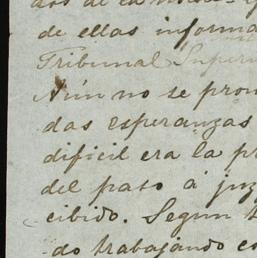 de ellas informa
Tribunal Superi
Aún no se pron
das esperanzas
dificil era la pr
del pato á juz
cibido. Segun t
do trabajando co